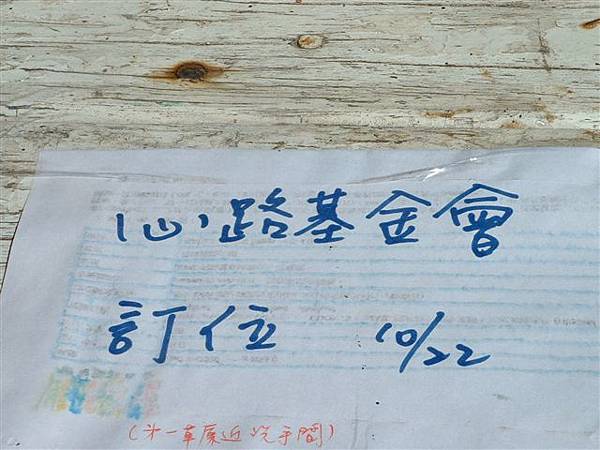 心路基金會
訂位 10/22
(第一車廠近洗手間)